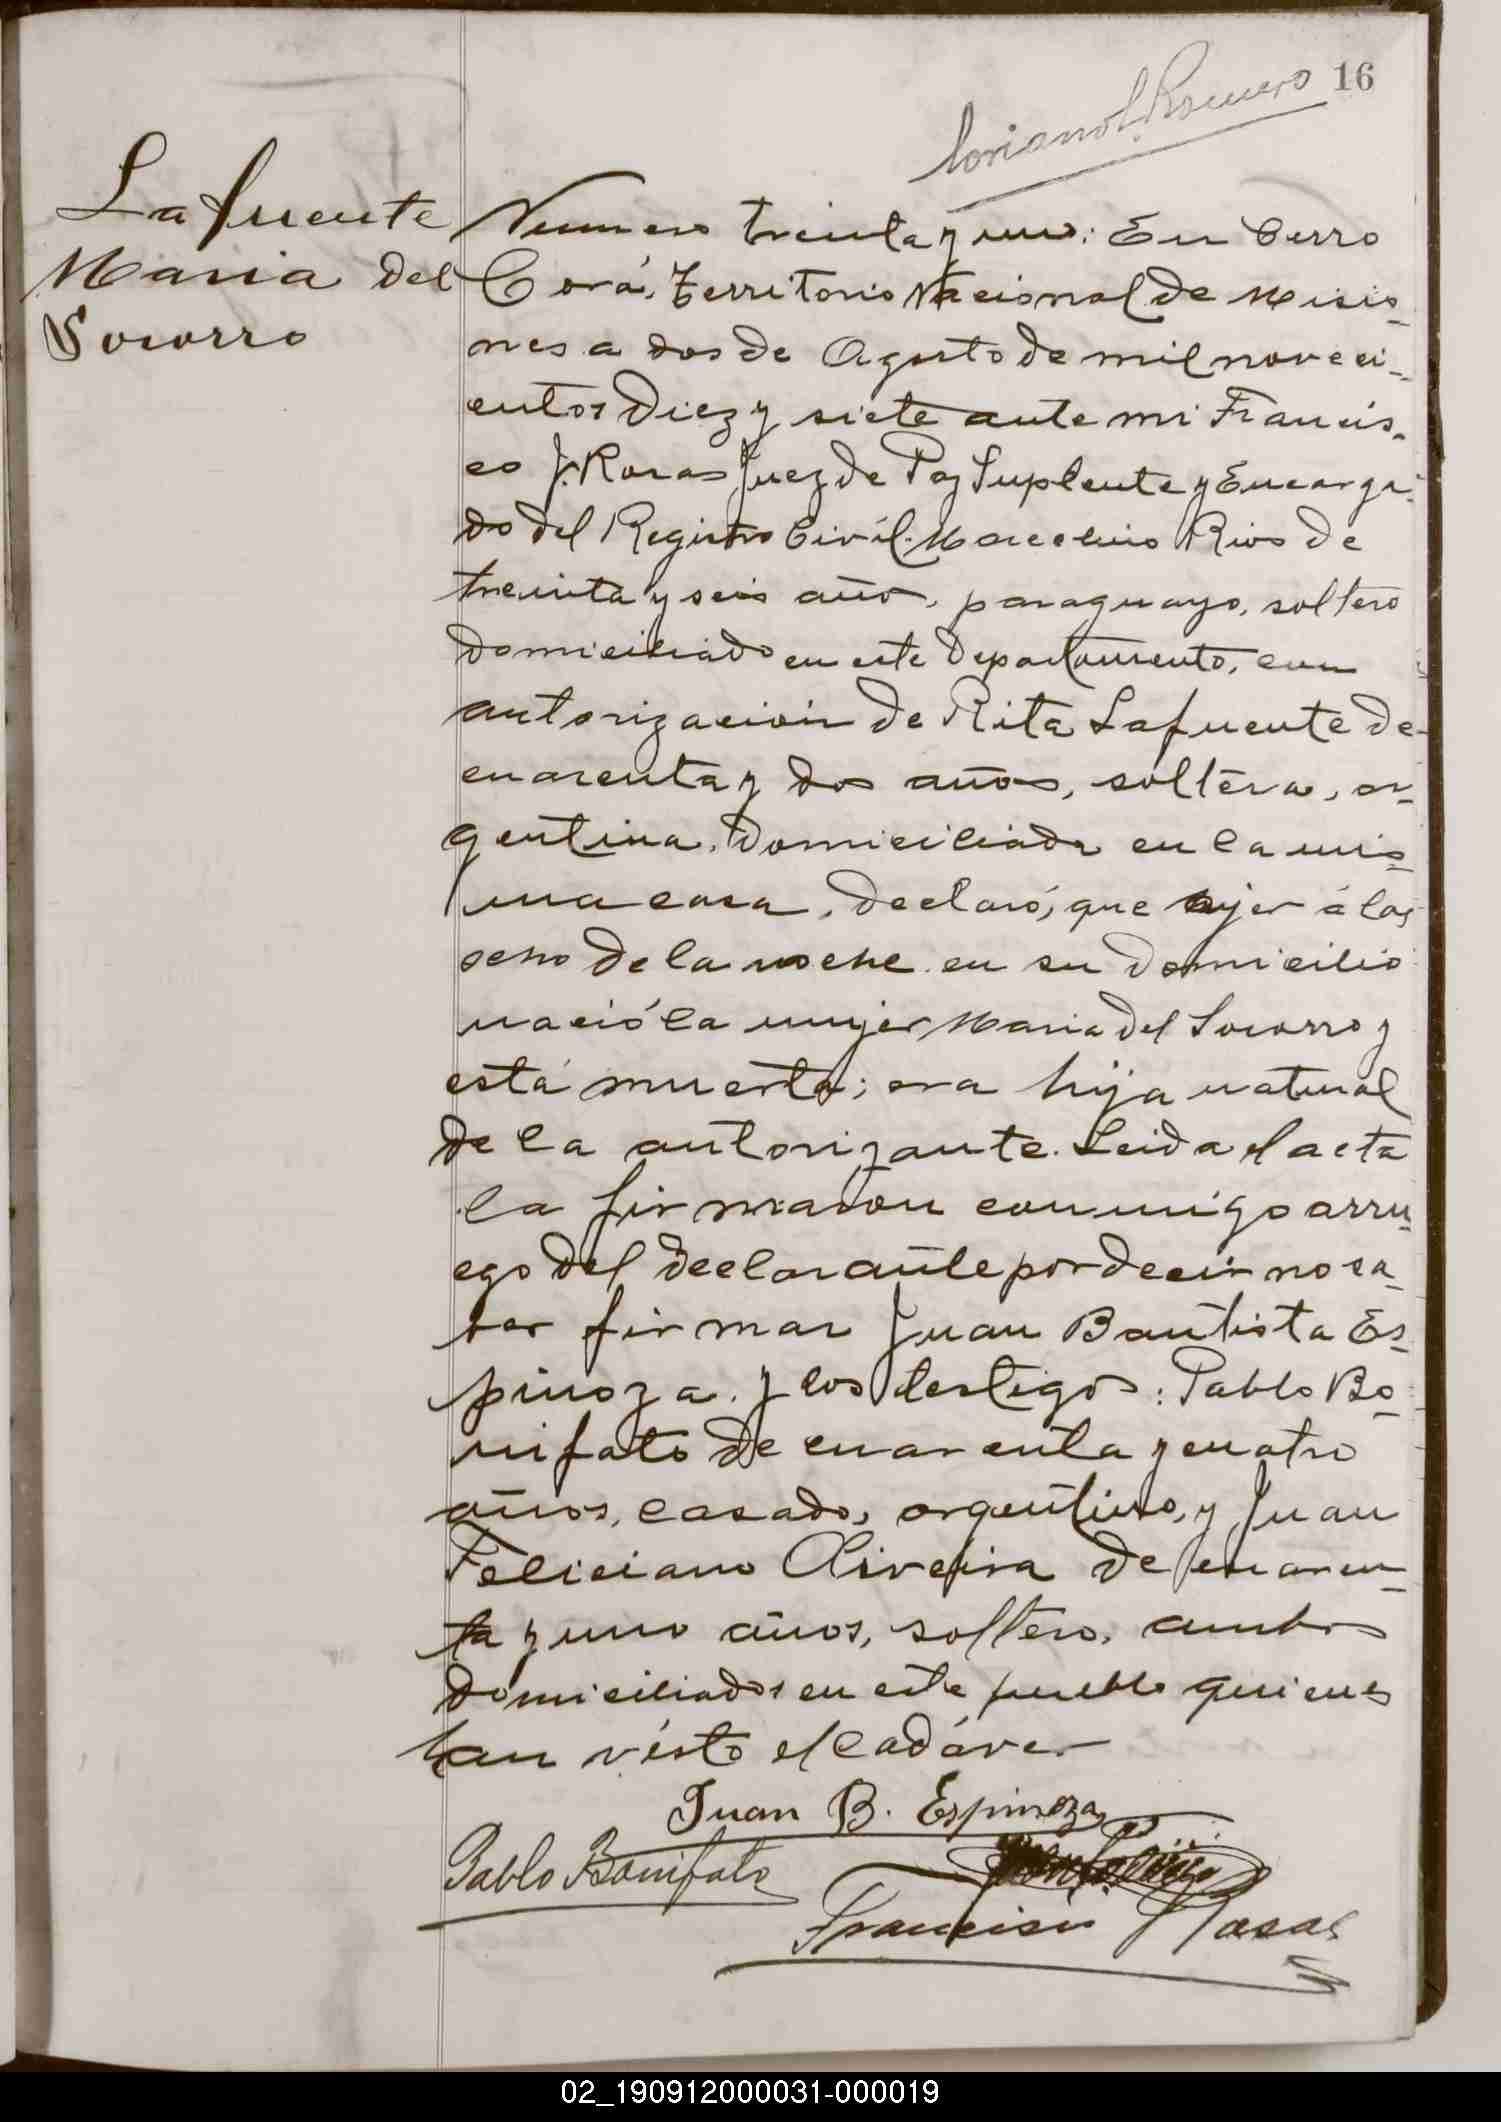 16
Lafuente
Maria del
Socorro
Numero treinta y uno: En Cerro
Corá, Territorio Nacional de Misio-
nes a dos de Agosto de mil noveci-
entos diez y siete ante mi Francis-
co J. Rosas Juez de Paz Suplente y Encarga-
do del Registro Civil. Marcelino Rios de
treinta y seis años, paraguayo, soltero
domiciliado en este departamento, con
autorizacion de Rita Lafuente de
cuarenta y dos años, soltera, ar-
gentina, domiciliada en la mis-
ma casa, declaró, que ayer á las
ocho de la noche en su domicilio
nació la mujer Maria del Socorro y
está muerta; era hija natural
de la autorizante. Leida el acta
la firmaron conmigo a rru-
ego del declarante por decir no sa-
ber firmar Juan Bautista Es-
pinoza y los testigos: Pablo Bo-
nifato de cuarenta y cuatro
años, casado, argentino, y Juan
Feliciano Oliveira de cuaren-
ta y uno años, soltero, ambos
domiciliados en este pueblo quienes
han visto el cadáver
Juan B. Espinoza
Pablo Bonifato
Francisco Rosas
02_190912000031-000019